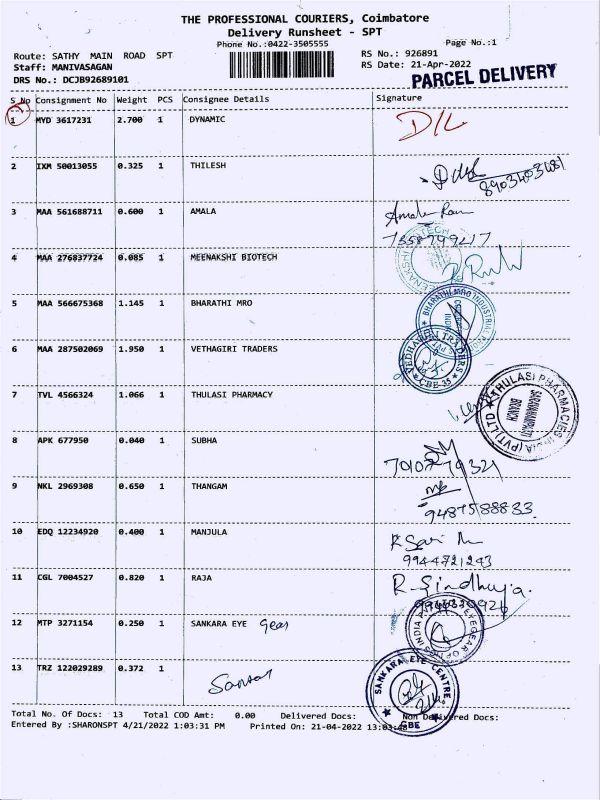 THE PROFESSIONAL COURIERS, Coimbatore
Delivery Runsheet - SPT
Phone No.:0422-3505555
Page No.:1
Route: SATHY MAIN ROAD SPT
RS No.: 926891
Staff: MANIVASAGAN
RS Date: 21-Apr-2022
DRS No.: DCJB92689101
PARCEL DELIVERY
S No Consignment No Weight PCS Consignee Details Signature
1 MYD 3617231 2.700 1 DYNAMIC D/L
2 IXM 50013055 0.325 1 THILESH
8903403481
3 MAA 561688711 0.600 1 AMALA
7358799217
4 MAA 276837724 0.085 1 MEENAKSHI BIOTECH
5 MAA 566675368 1.145 1 BHARATHI MRO
BHARATHI MRO INDUSTRIAL
6 MAA 287502069 1.950 1 VETHAGIRI TRADERS
TRADERS
CBE 35
7 TVL 4566324 1.066 1 THULASI PHARMACY
THULASI PHARMACIES INDIA (PVT) LTD
SARAVANAMPATTI
BRANCH
8 APK 677950 0.040 1 SUBHA
7010779321
9 NKL 2969308 0.650 1 THANGAM
9487588883
10 EDQ 12234920 0.400 1 MANJULA
9944721243
11 CGL 7004527 0.820 1 RAJA R. Sindhuja.
12 MTP 3271154 0.250 1 SANKARA EYE Gear
13 TRZ 122029289 0.372 1
SANKARA EYE CENTRE
CBE
Total No. Of Docs: 13 Total COD Amt: 0.00 Delivered Docs: Non Delivered Docs:
Entered By :SHARONSPT 4/21/2022 1:03:31 PM Printed On: 21-04-2022 13:03: